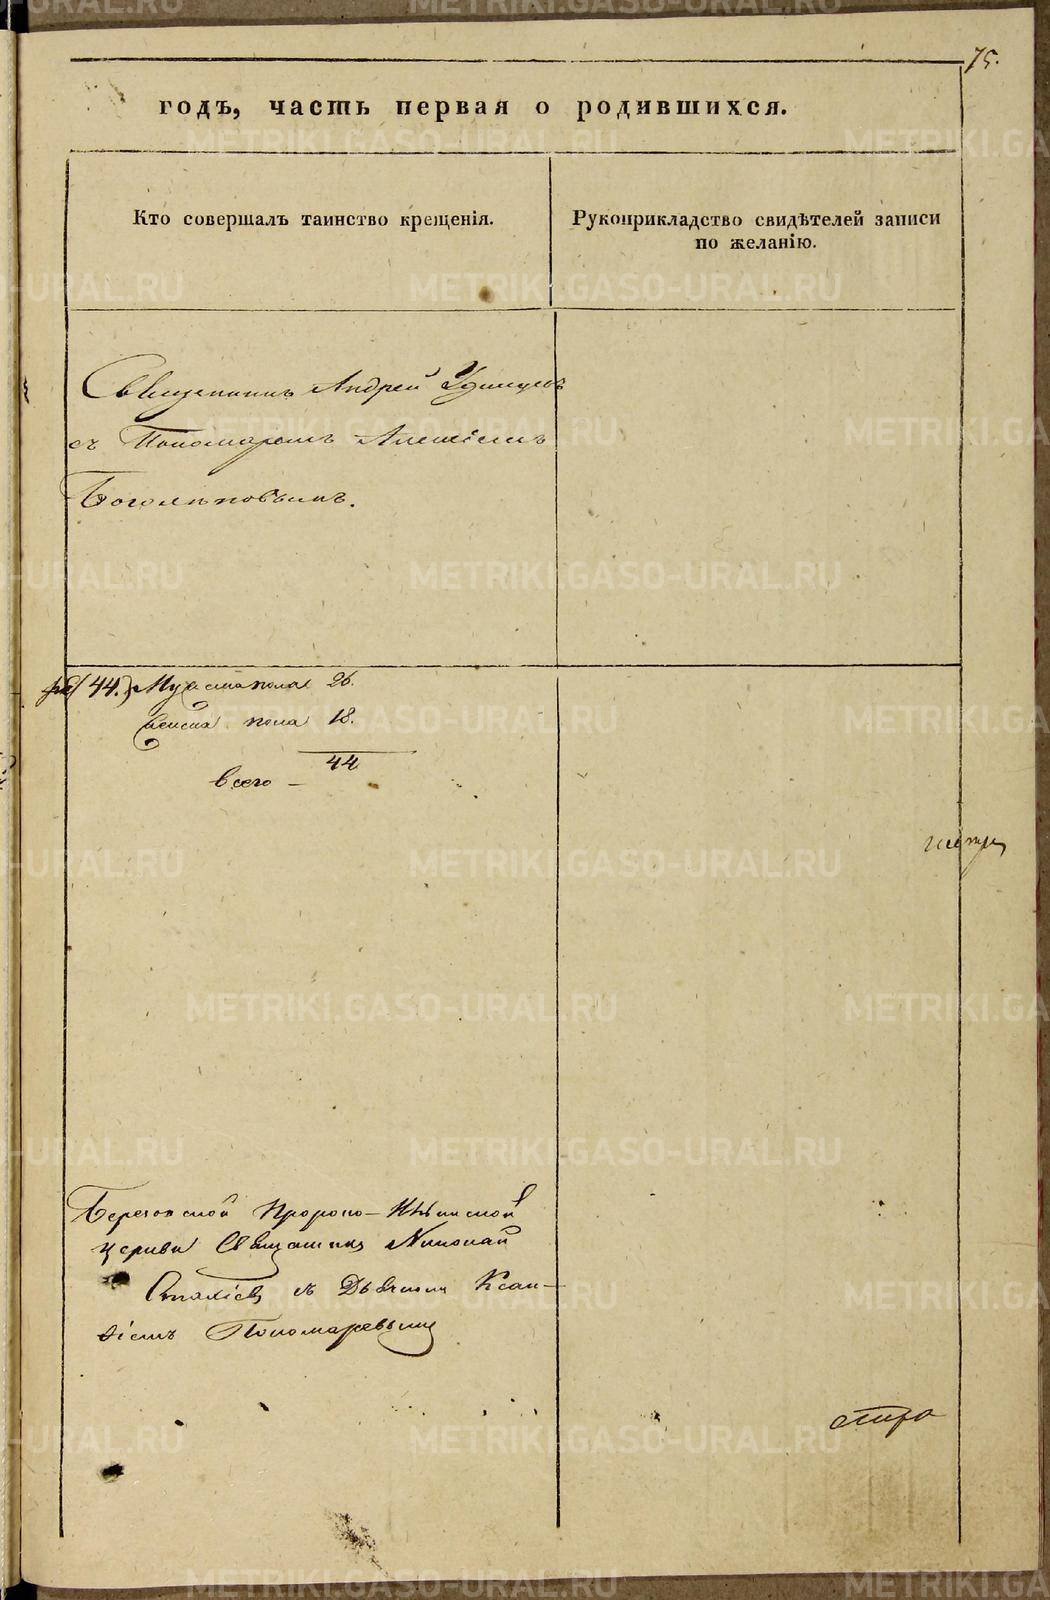 75.
годъ, часть первая о родившихся.
Кто совершалъ таинство крещенія.
Рукоприкладство свидѣтелей записи
по желанію.
Священникъ Андрей Удинцевъ
съ Пономаремъ Алексіемъ
Боголѣповымъ.
44.) Мужеска пола 26.
Женска пола 18.
44
Всего —
Березовской Пророко-Ильинской
церкви Священникъ Николай
съ Дьячкомъ Ксан-
ѳіемъ Пономаревымъ
METRIKI.GASO-URAL.RU